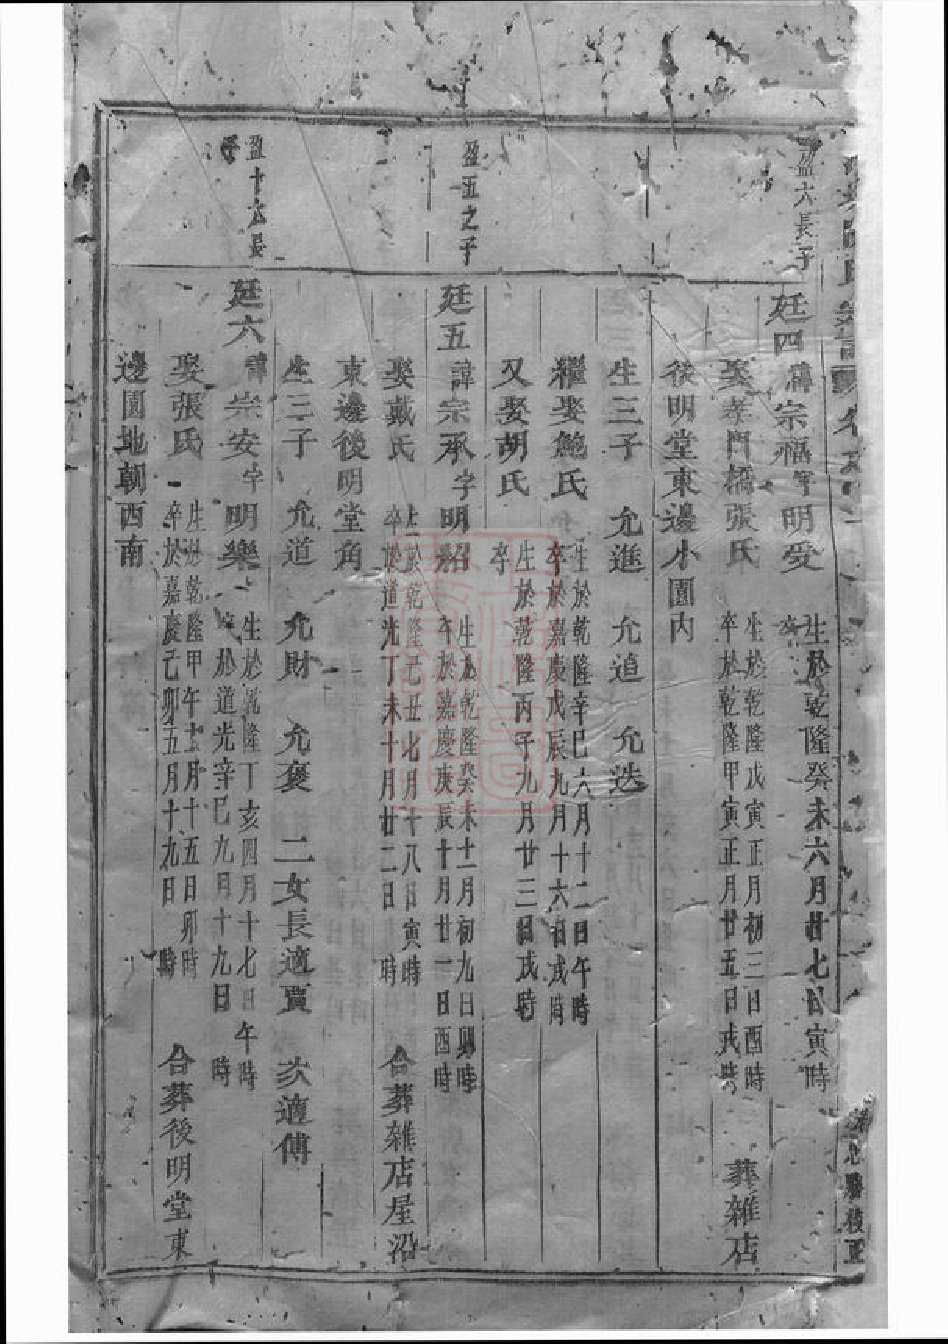 盈六長子
廷四 諱宗福字明受 生於乾隆癸未六月廿七日寅時 卒
娶孝門橋張氏 生於乾隆戊寅正月初三日酉時 卒於乾隆甲寅正月廿五日戌時 葬雜店
後明堂東邊小園內
生三子 允進 允追 允迭
繼娶鮑氏 生於乾隆辛巳六月十二日午時 卒於嘉慶戊辰九月十六日戌時
又娶胡氏 生於乾隆丙子九月廿三日戌時 卒
盈五之子
廷五 諱宗承字明紹 生於乾隆癸未十一月初九日卯時 卒於嘉慶庚辰十月廿一日酉時
娶戴氏 生於乾隆己丑七月十八日寅時 卒於道光丁未十月廿二日 時 合葬雜店屋沿
東邊後明堂角
生三子 允道 允財 允褒 二女長適賈 次適傅
盈十六長子
廷六 諱宗安字明樂 生於乾隆丁亥四月十七日午時 卒於道光辛巳九月十九日 時
娶張氏 生於乾隆甲午十二月十五日卯時 卒於嘉慶己卯五月十九日 時 合葬後明堂東
邊園地朝西南